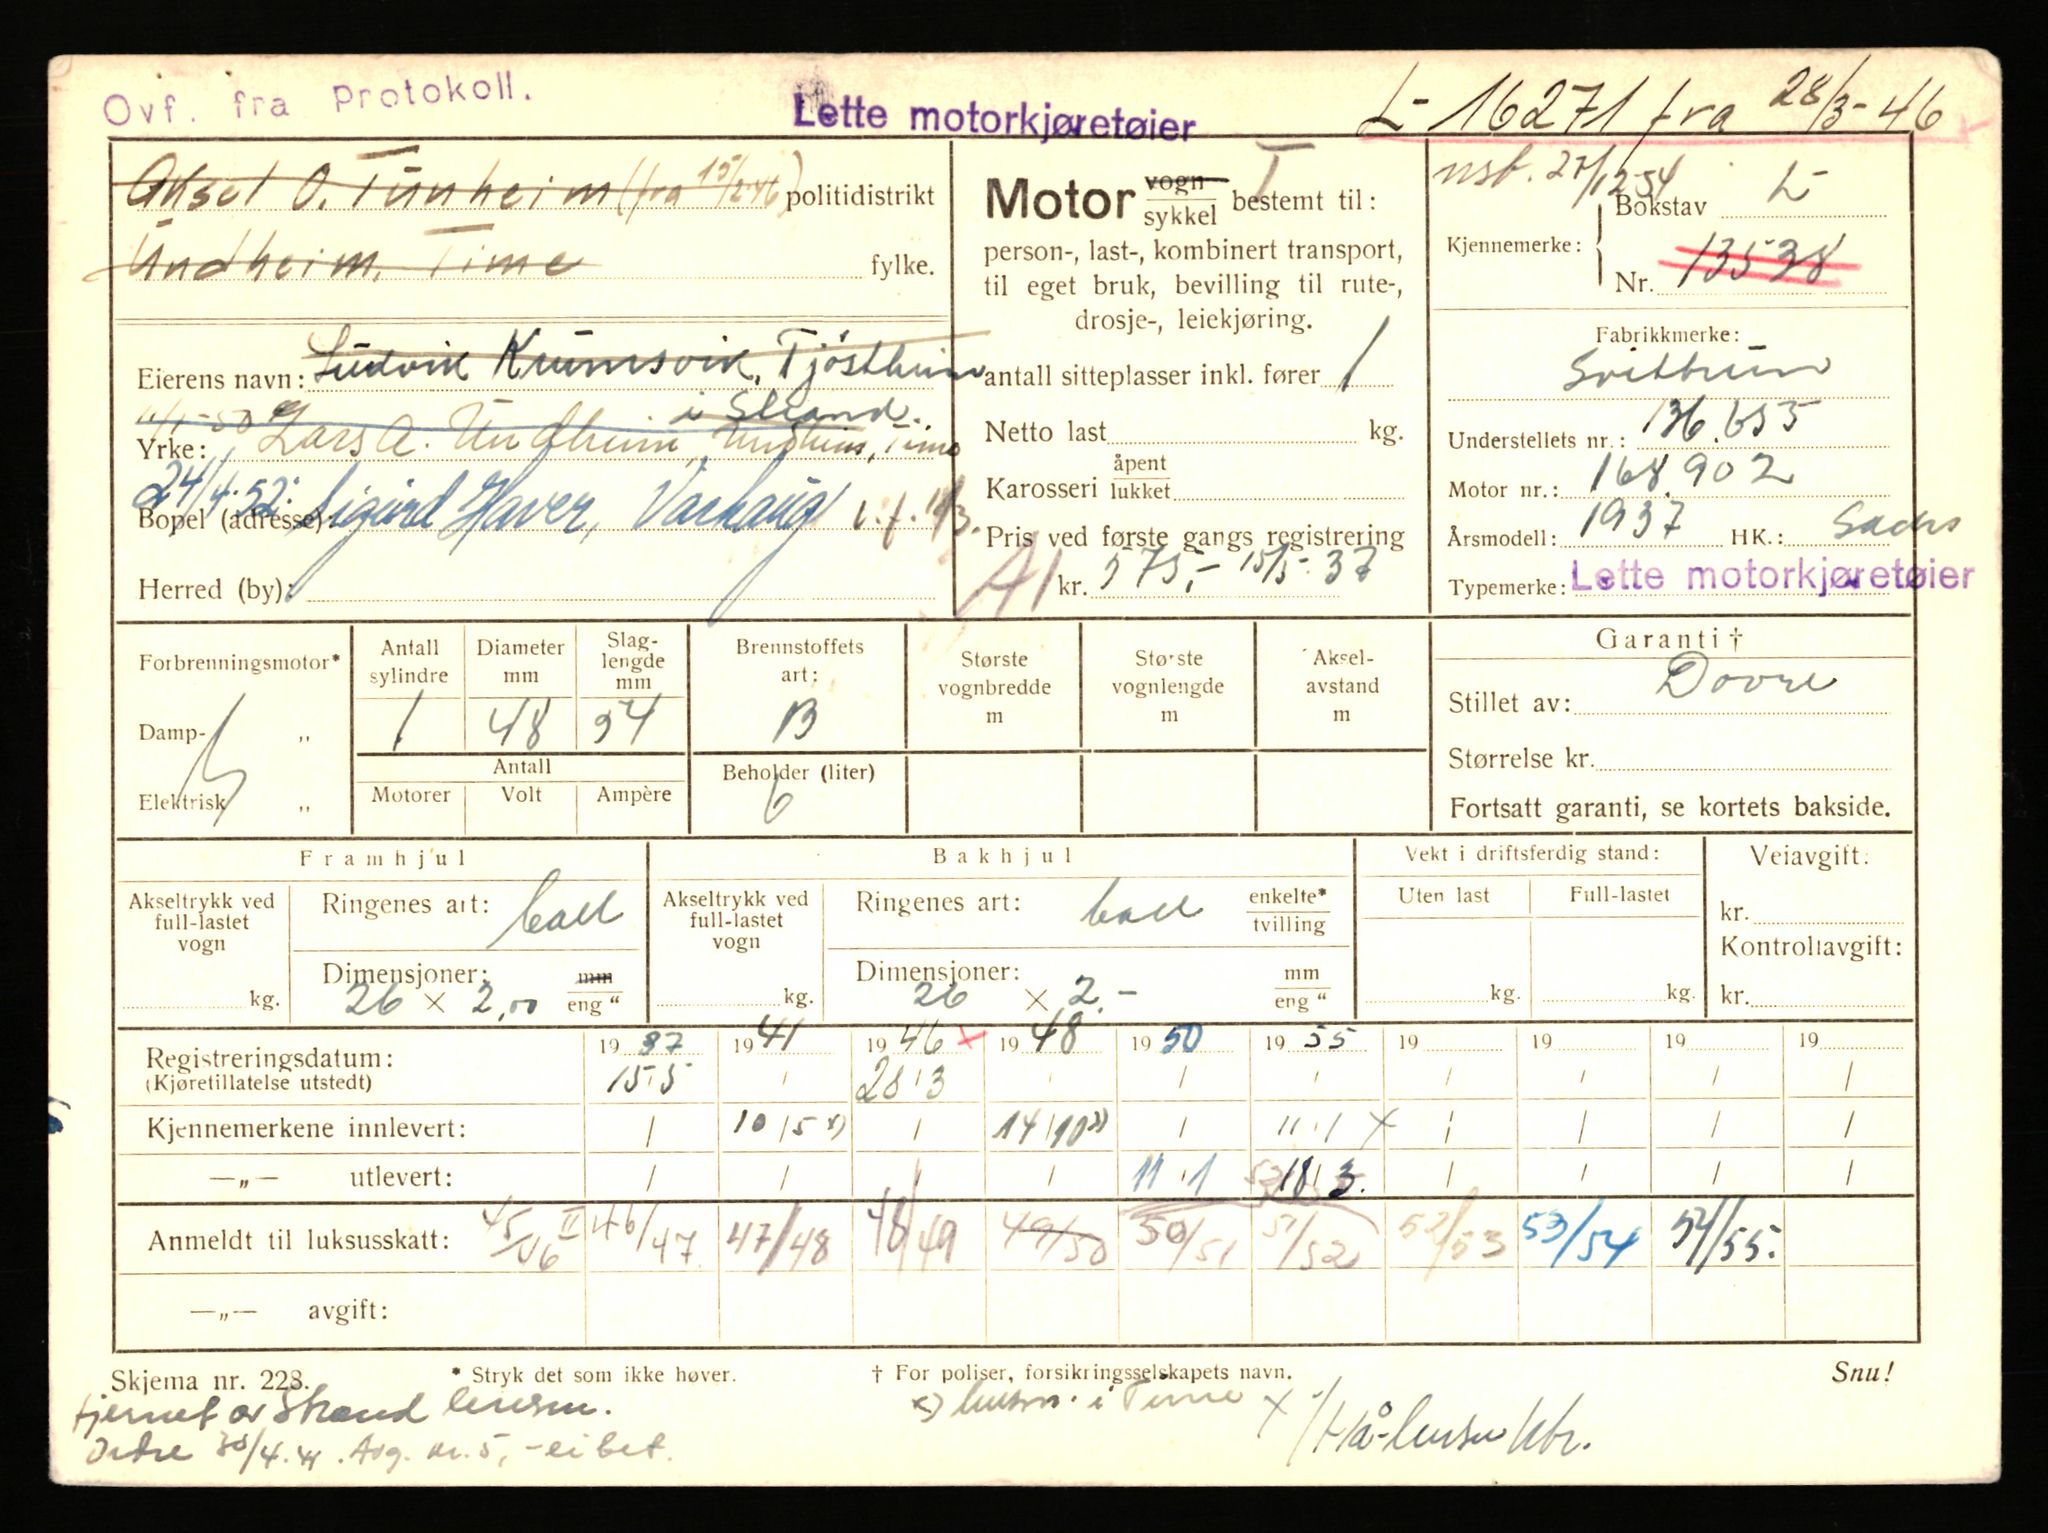 Ovf. fra Protokoll.
Lette motorkjøretøier
L- 16271 fra 28/3-46
Aksel O. Tunheim (fra 15/2-46) politidistrikt
Undheim, Time fylke.
Eierens navn: Ludvik Krumsvik, Tjöstheim
i Strand.
11/1-50 Lars A. Undheim, Undheim, Time
Yrke:
24/4-52: Sigurd Haver, Varhaug i.f. 18/3.
Bopel (adresse):
Herred (by):
Motor vogn sykkel bestemt til:
T
person-, last-, kombinert transport,
til eget bruk, bevilling til rute-,
drosje-, leiekjøring.
antall sitteplasser inkl. fører 1
Netto last kg.
Karosseri åpent lukket
Pris ved første gangs registrering
A1 kr. 575,- 15/5-37
nsb. 27/12-54
Kjennemerke: Bokstav L-
Nr. 13538
Fabrikkmerke:
Svithun
Understellets nr.: 136.655
Motor nr.: 168.902
Årsmodell: 1937 HK.: Sachs
Typemerke: Lette motorkjøretøier
Forbrenningsmotor*
Damp- „
Elektrisk „
Antall sylindre
1
Diameter mm
48
Slag-lengde mm
54
Antall
Motorer Volt Ampère
Brennstoffets art:
B
Beholder (liter)
6
Største vognbredde m
Største vognlengde m
Aksel-avstand m
Garanti †
Stillet av: Dovre
Størrelse kr.
Fortsatt garanti, se kortets bakside.
Framhjul
Akseltrykk ved full-lastet vogn
kg.
Ringenes art: ball
Dimensjoner: mm
26 x 2,00 eng "
Bakhjul
Akseltrykk ved full-lastet vogn
kg.
Ringenes art: ball enkelte* tvilling
Dimensjoner: mm
26 x 2.- eng "
Vekt i driftsferdig stand:
Uten last Full-lastet
kg. kg.
Veiavgift:
kr.
Kontrollavgift:
kr.
Registreringsdatum: 1937 1941 1946 x 1948 1950 1955 19 19 19 19
(Kjøretillatelse utstedt) 15/5 / 28/3 / / / / / / /
Kjennemerkene innlevert: / 10/5 x) / 14/10 / 11/1 x / / / /
—„— utlevert: / / / / 11/1 18/3. / / / /
Anmeldt til luksusskatt: 45/46 II 46/47 47/48 48/49 49/50 50/51 51/52 52/53 53/54 54/55.
—„— avgift:
Skjema nr. 228. * Stryk det som ikke høver. † For poliser, forsikringsselskapets navn. Snu!
fjernet av Strand lensm. x) lensm. i Time x
Ordre 30/4.41. Avg. kr. 5,- ei bet. Hå-lensm. ktr.